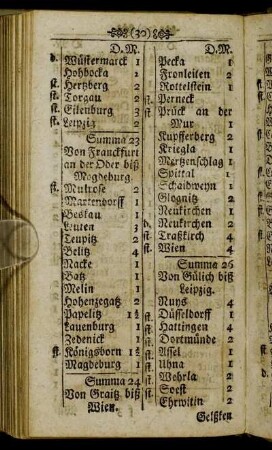 (30)
D.M.
d. Wüstermarck 1
Hohbocka 1
st. Hertzberg 2
st. Torgau 2
st. Eilenburg 3
st. Leipzig 2
Summa 23
Von Franckfurt
an der Oder biß
Magdeburg.
st. Mulrose 2
Martendorff 1
Beskau 1
Leuten 3
Teupitz 2
Belitz 4
Nacke 1
Batz 1
Melin 1
Hohenzegatz 2
Papelitz 1½
Lauenburg 1
Zedenick 1
st. Königsborn 1½
Magdeburg 1
Summa 24
Von Graitz biß
Wien.
D.M.
Pecka 1
Fronleiten 2
Rottelstein 1
st. Perneck
st. Prück an der
Mur 1
Kupfferberg 2
Kriegla 1
Mertzenschlag 1
Spittal 1
Schaidweyn 1
Glognitz 2
Neukirchen 1
d. Neukirchen 2
st. Traßkirch 4
st. Wien 4
Summa 26
Von Gülich biß
Leipzig.
Nuys 4
st. Düsseldorff 1
st. Hattingen 4
st. Dortmünde 2
st. Assel 1
st. Uhna 1
st. Wehrla 2
st. Soest 2
st. Ehrwitin 2
Geltzken